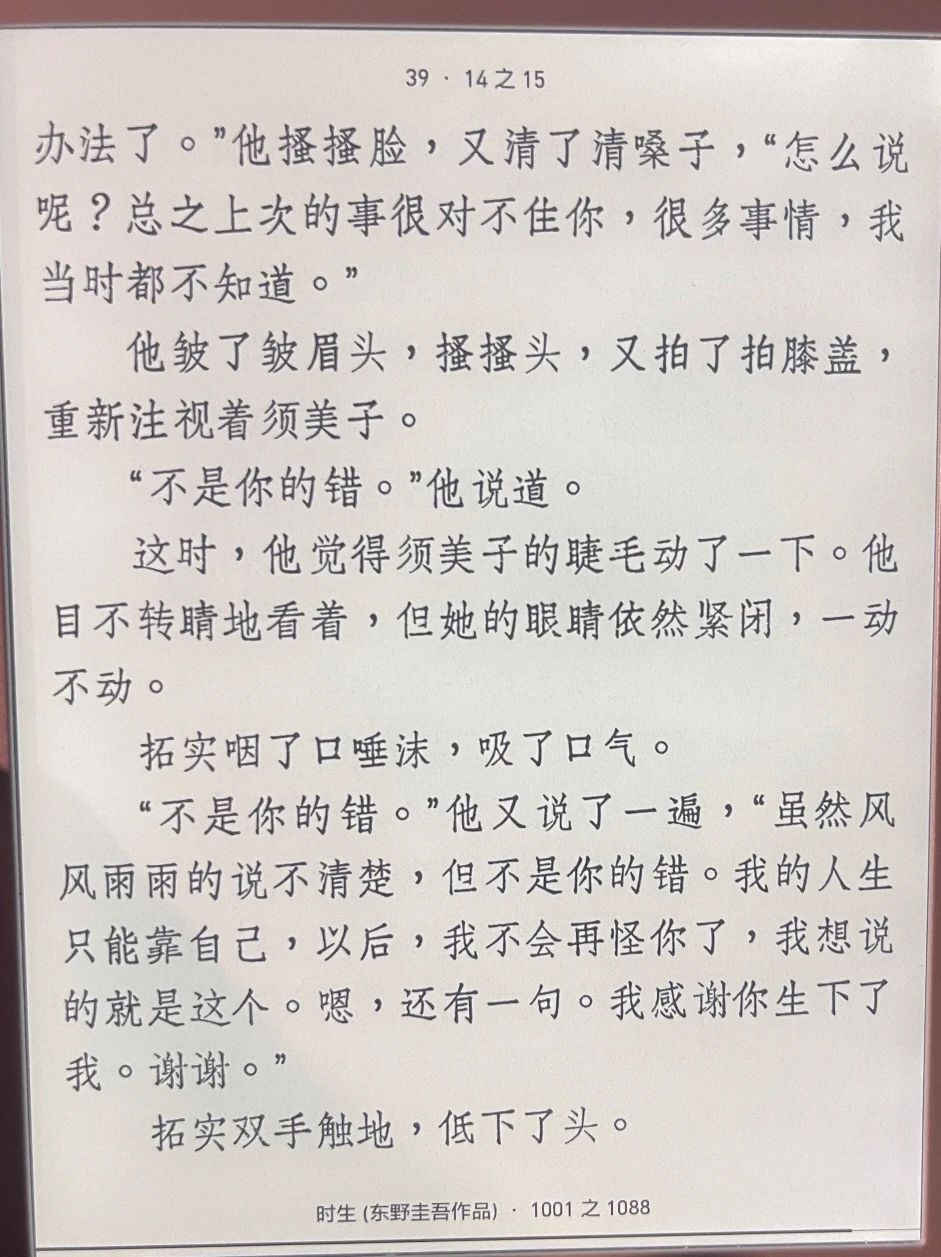 39 · 14之15
办法了。”他搔搔脸，又清了清嗓子，“怎么说
呢？总之上次的事很对不住你，很多事情，我
当时都不知道。”
他皱了皱眉头，搔搔头，又拍了拍膝盖，
重新注视着须美子。
“不是你的错。”他说道。
这时，他觉得须美子的睫毛动了一下。他
目不转睛地看着，但她的眼睛依然紧闭，一动
不动。
拓实咽了口唾沫，吸了口气。
“不是你的错。”他又说了一遍，“虽然风
风雨雨的说不清楚，但不是你的错。我的人生
只能靠自己，以后，我不会再怪你了，我想说
的就是这个。嗯，还有一句。我感谢你生下了
我。谢谢。”
拓实双手触地，低下了头。
时生 (东野圭吾作品) · 1001之1088